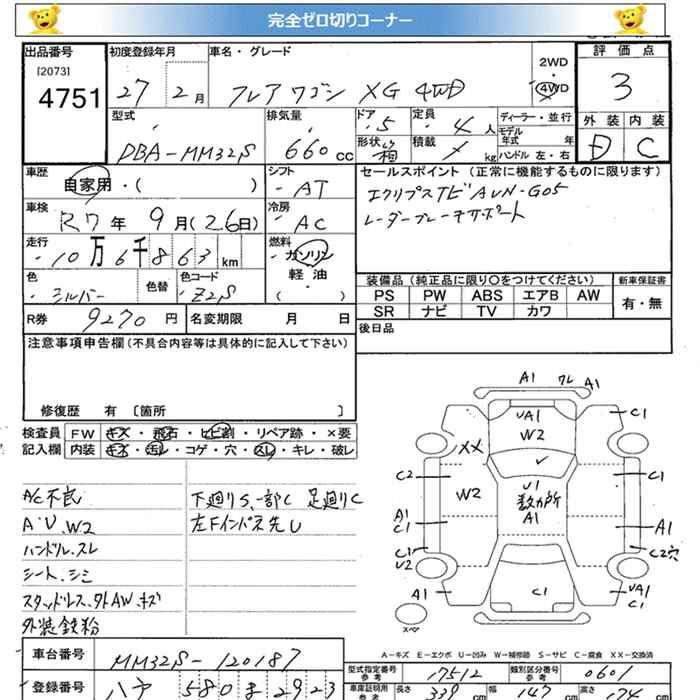 完全ゼロ切りコーナー
出品番号 初度登録年月 車名・グレード 2WD 評価点
[2073] ・
4751 27 2月 フレアワゴン XG 4WD 4WD 3
型式 排気量 ドア 定員 ディーラー・並行 外装 内装
・5 ・4人 モデル年式 年
DBA-MM32S 660cc 形状 箱 積載 kg ハンドル 左・右 D C
車歴 シフト セールスポイント(正常に機能するものに限ります)
自家用・( ) ・AT エクリプスTVﾞAVN-G05
車検 冷房 レーダーブレーキサポート
R7年9月(26日) ・AC
走行 燃料
・10万6千863km ガソリン
軽油
色 色替 色コード ( ) 装備品(純正品に限り○をつけてください) 新車保証書
・シルバー ・Z2S PS PW ABS エアB AW 有・無
SR ナビ TV カワ
R券 9270円 名変期限 月 日 後日品
注意事項申告欄(不具合内容等は具体的に記入して下さい)
修復歴 有 〔箇所 〕
検査員 FW キズ・飛石・ヒビ割・リペア跡・×要
記入欄 内装 キズ・汚レ・コゲ・穴・スレ・キレ・破レ
AC不良 下廻りS、一部C 足廻りC
A・U、W2 左Fインパネ先U
ハンドル、スレ
シート、シミ
スタッドレス、外AW、キズ
外装鉄粉
A1 クレ A1
UA1 C1
W2
XX
C2 C1
W2 U1
数カ所
A1
A1 A1
C1
C1 C2穴
U2
A1 C1 UA1
C1
スペア
A-キズ E-エクボ U-凹み W-補修跡 S-サビ C-腐食 XX-交換済
車台番号 MM32S-120187 型式指定番号 参考 17512 類別区分番号 参考 0601
登録番号 八戸 580 ま 2923 車庫証明用 参考 長さ 339cm 幅 147cm 高さ 174cm